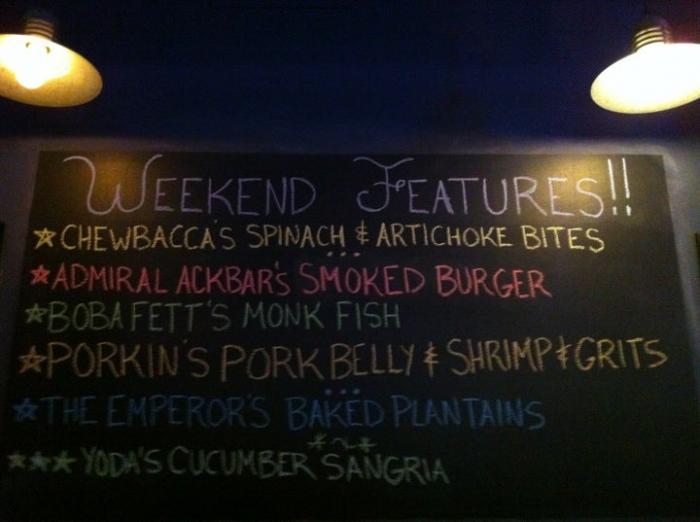 WEEKEND FEATURES!!
CHEWBACCA'S SPINACH & ARTICHOKE BITES
ADMIRAL ACKBAR'S SMOKED BURGER
BOBA FETT'S MONK FISH
PORKIN'S PORK BELLY & SHRIMP & GRITS
THE EMPEROR'S BAKED PLANTAINS
YODA'S CUCUMBER SANGRIA